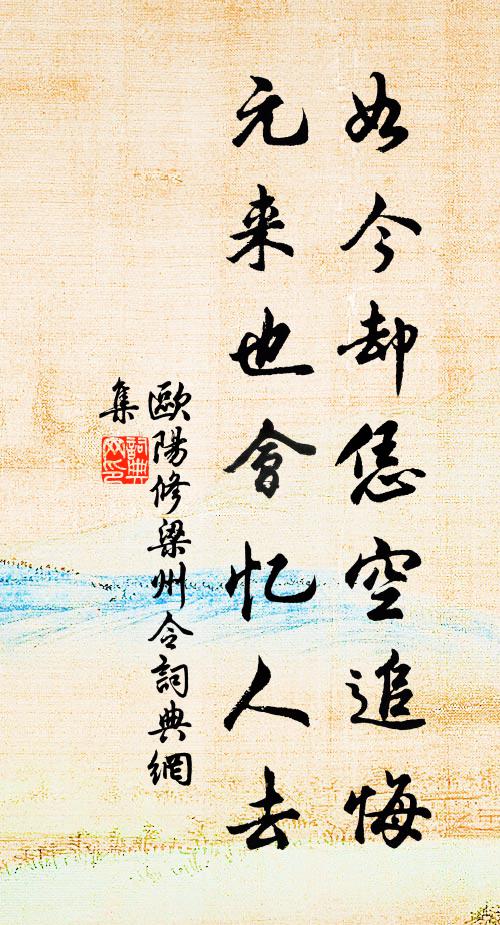 如今却恁空追悔
元来也會忆人去
歐陽修梁州令詞典網
集
詞典
网印